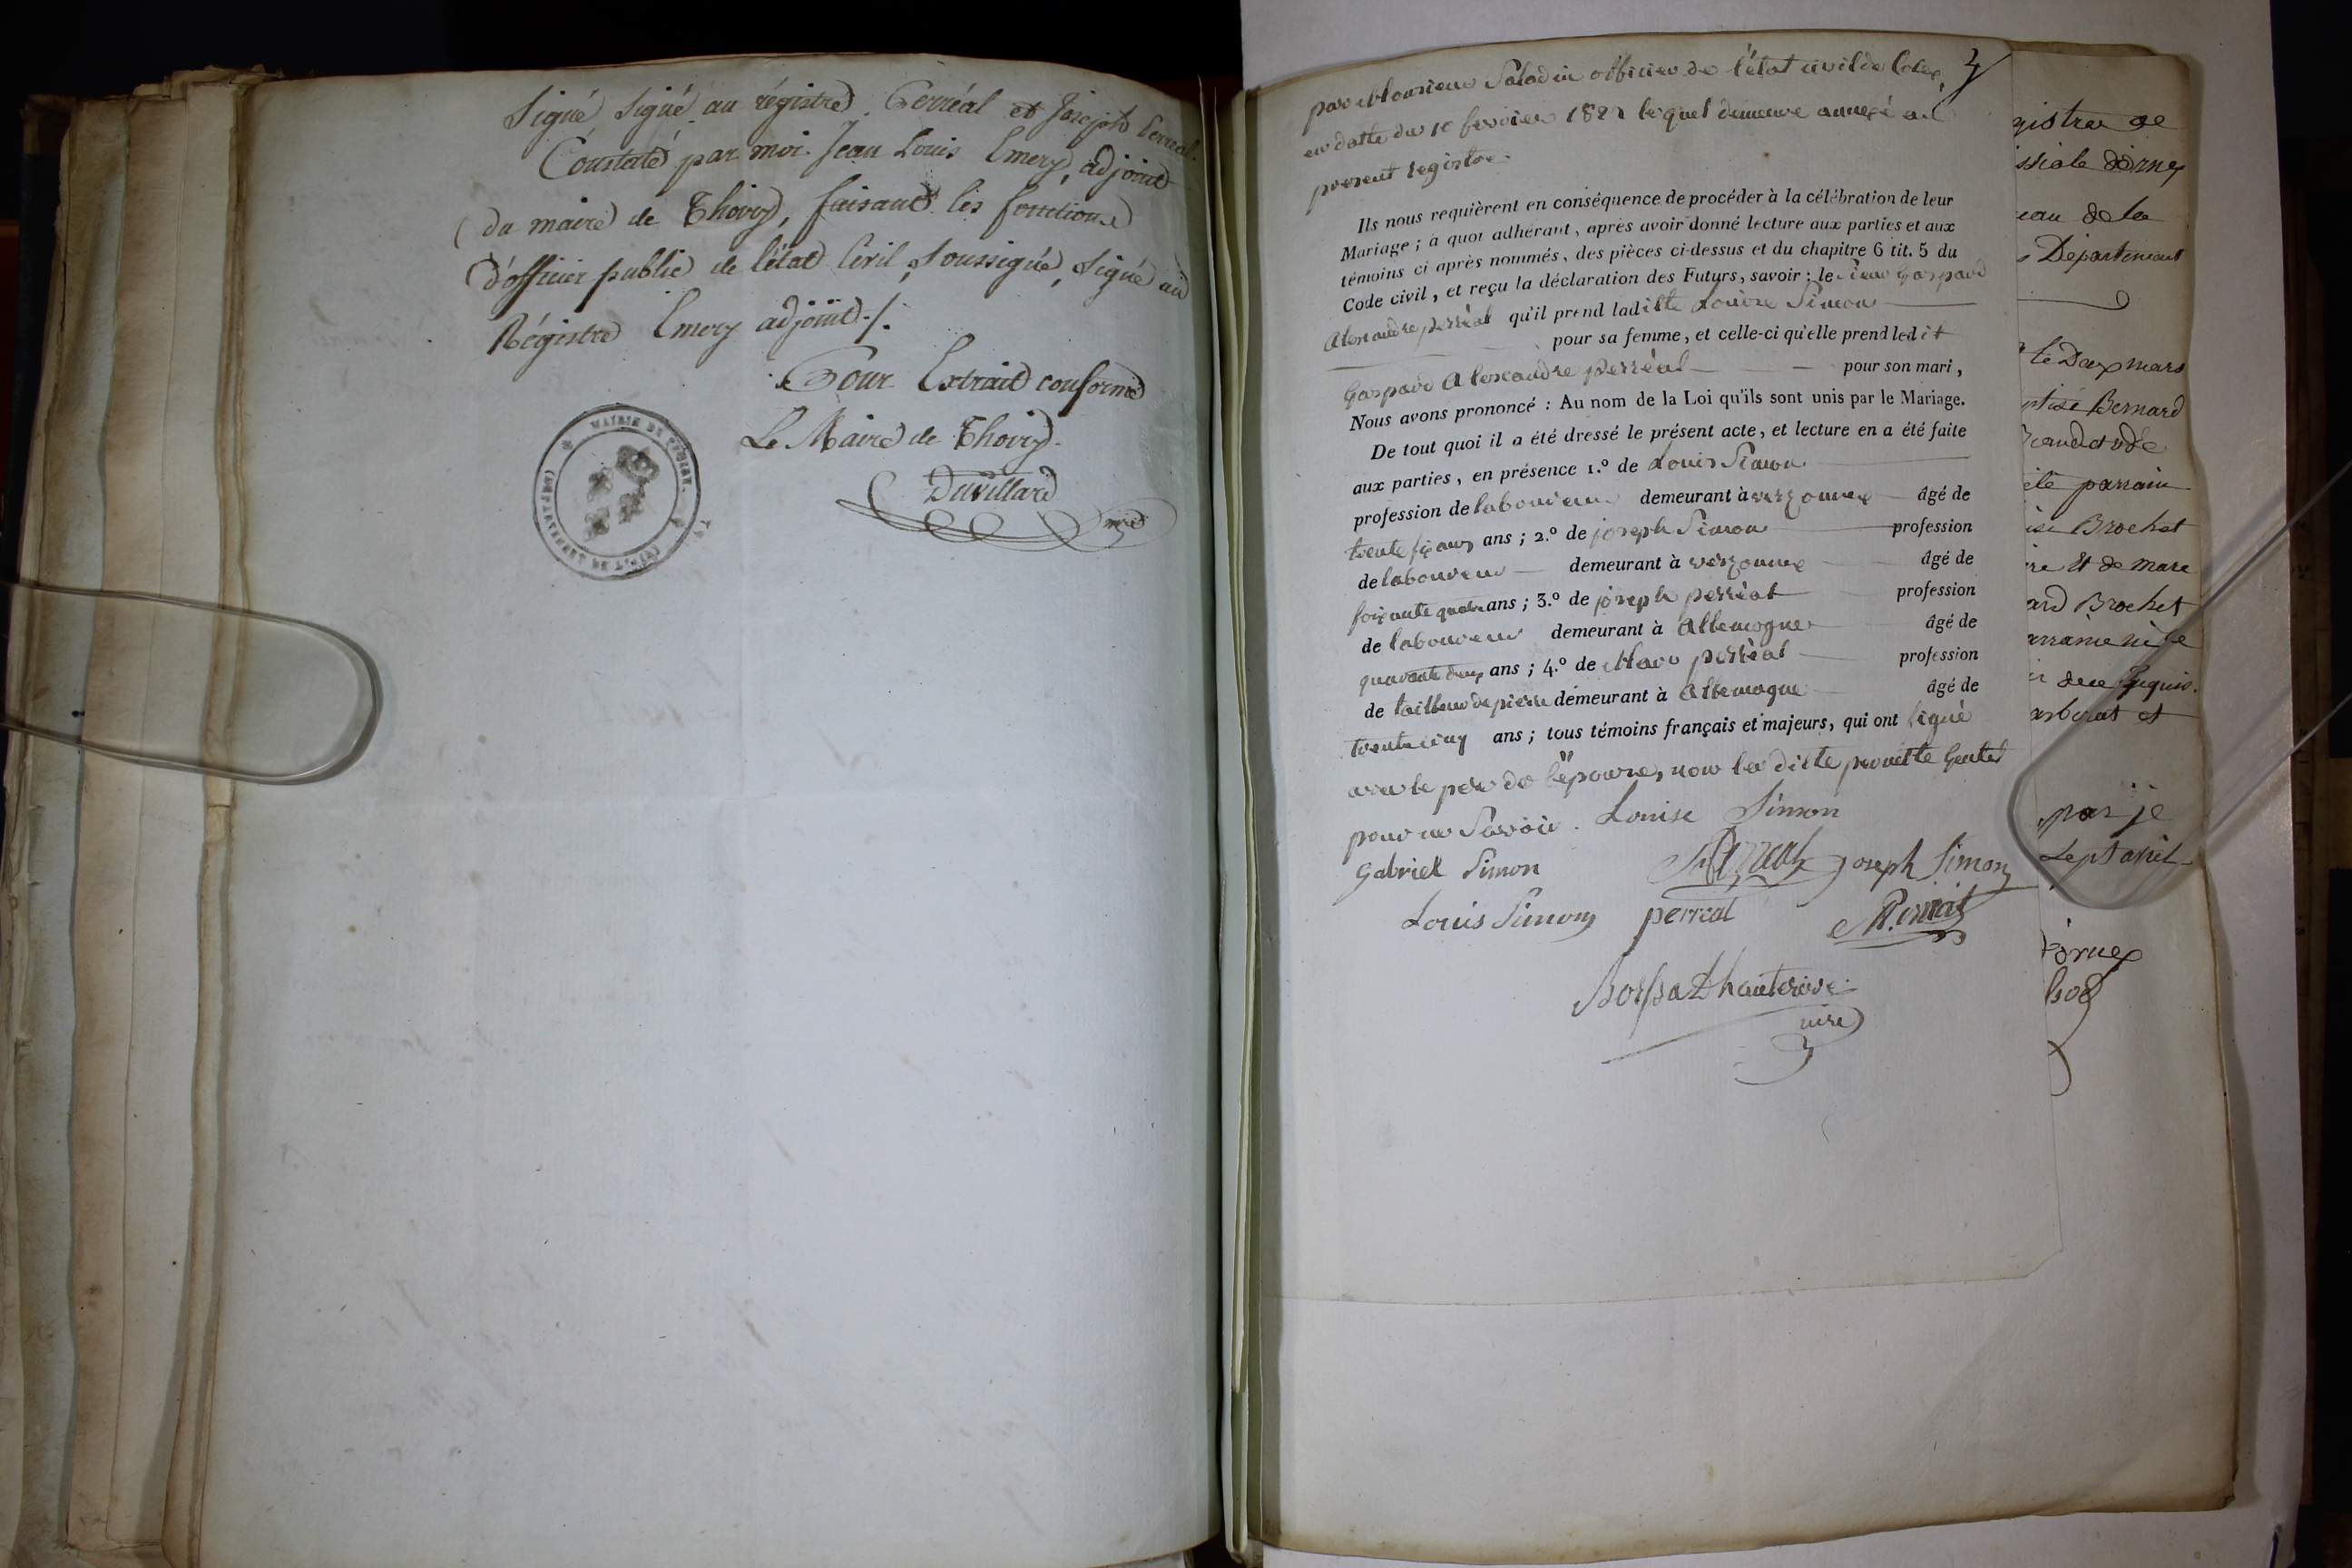 Signé Signé au régistre Perréal et Joseph Perréal.
Constaté par moi Jean Louis Emery, adjoint
du maire de Thoiry, faisant les fonctions
d'officier public de l'état Civil, soussigné, signé au
Régistre Emery adjoint ./.
Pour Extrait conforme
Le Maire de Thoiry.
Duvillard
MAIRIE DE
par Monsieur Saladin officier de l'état civil de
en datte du 10 fevrier 1822 lequel demeure annexé au
present registre.
Ils nous requièrent en conséquence de procéder à la célébration de leur
Mariage ; à quoi adhérant, après avoir donné lecture aux parties et aux
témoins ci après nommés, des pièces ci-dessus et du chapitre 6 tit. 5 du
Code civil, et reçu la déclaration des Futurs, savoir : le sieur Gaspard
Alexandre perréal qu'il prend ladite Louise Simon
pour sa femme, et celle-ci qu'elle prend ledit
Gaspard Alexandre perréal pour son mari,
Nous avons prononcé : Au nom de la Loi qu'ils sont unis par le Mariage.
De tout quoi il a été dressé le présent acte, et lecture en a été faite
aux parties, en présence 1.° de Louis Simon
profession de laboureur demeurant à verzonnex âgé de
trente six ans ans ; 2.° de joseph Simon profession
de laboureur demeurant à verzonnex âgé de
soixante quatre ans ; 3.° de joseph perréal profession
de laboureur demeurant à Allemogne âgé de
quarante deux ans ; 4.° de Marc perréal profession
de tailleur de pierre demeurant à Allemogne âgé de
trente cinq ans ; tous témoins français et majeurs, qui ont signé
avec le pere de l'épouse, non la ditte pernette Gentet
pour ne Savoir. Louise Simon
Gabriel Simon Perréal joseph Simon
Louis Simon perreal M. Perréal
Borssat Dhauterive
mre
gistre de
ssiale dornex
eau de la
Département
le Deux mars
ptisé Bernard
été parrain
Brochet
re et de marc
ard Brochet
arraine
et
par je
sept avril
ornex